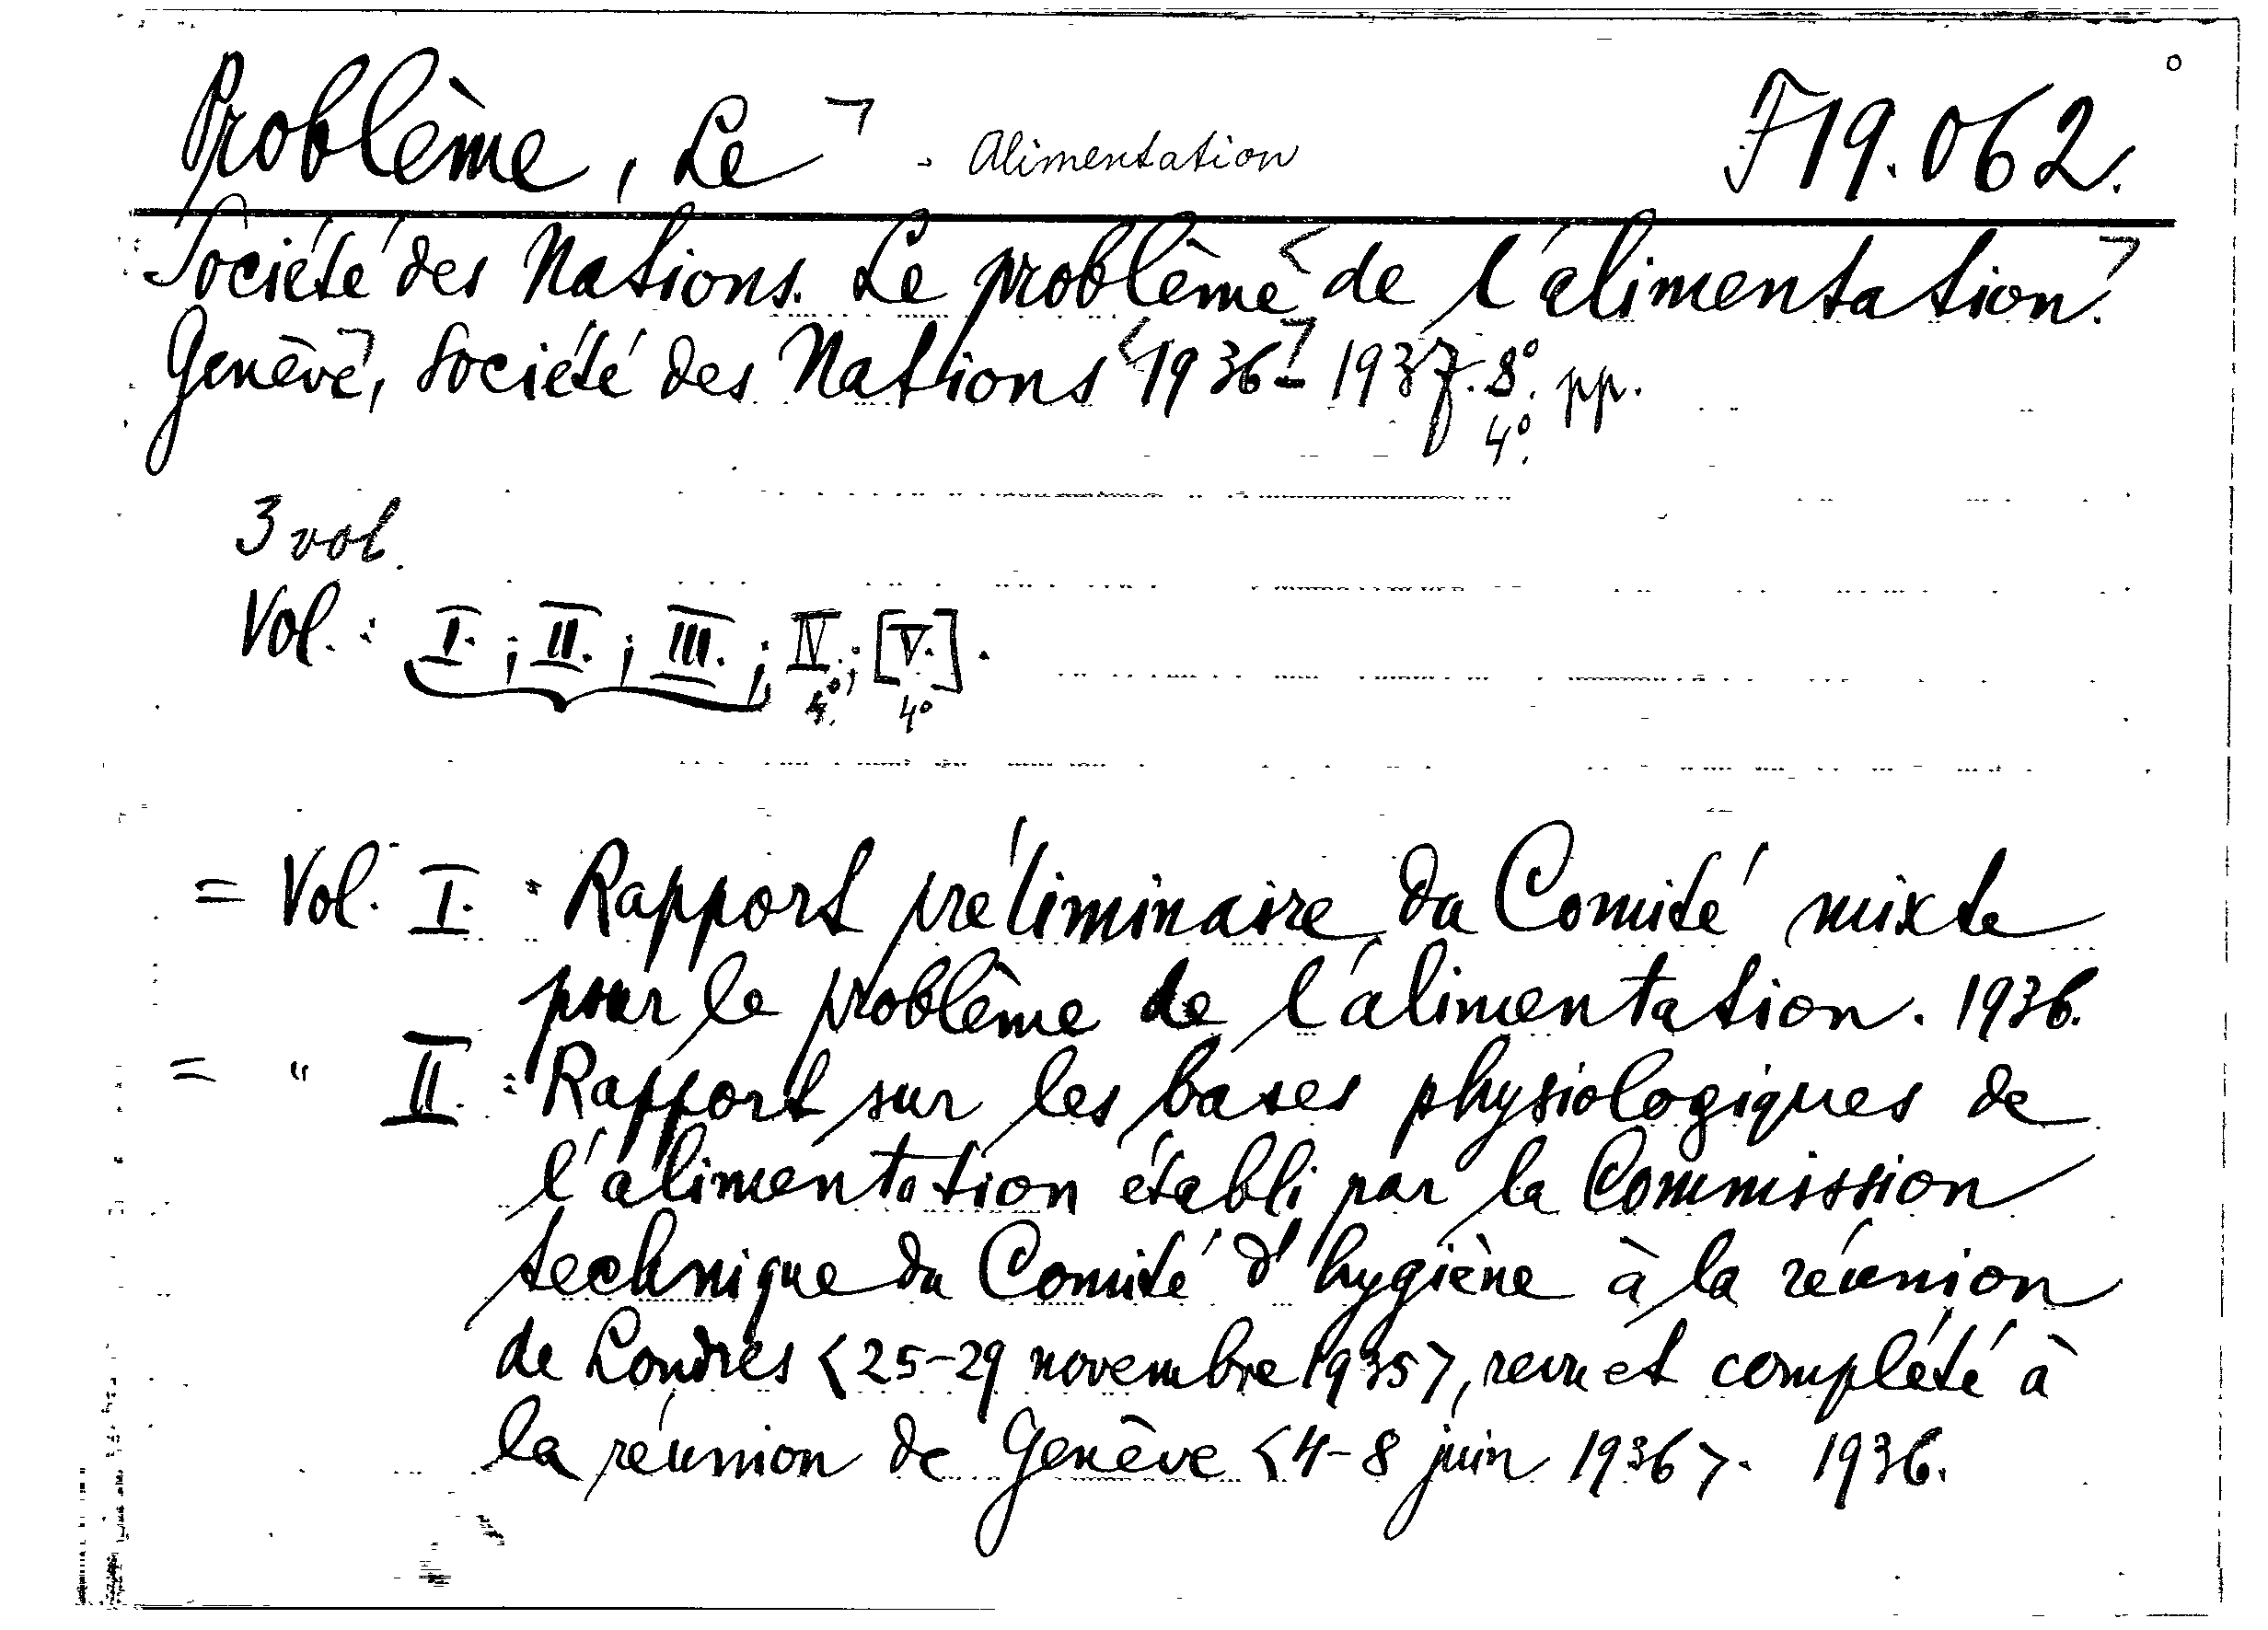 Problème, Le ㄱ . Alimentation F 19.062.
Société des Nations. Le problème <de l'alimentation.ㄱ
Genèveㄱ, Société des Nations <1936ㄱ- 1937. 8º. pp.
4º.
3 vol.
Vol. : I. ; II. ; III. ; IV. ; [V.] .
4º. 4º
= Vol. I. : Rapport préliminaire du Comité mixte
pour le problème de l'alimentation. 1936.
= " II. : Rapport sur les bases physiologiques de
l'alimentation établi par la Commission
technique du Comité d'hygiène à la réunion
de Londres <25-29 novembre 1935>, revu et complété à
la réunion de Genève <4-8 juin 1936>. 1936.